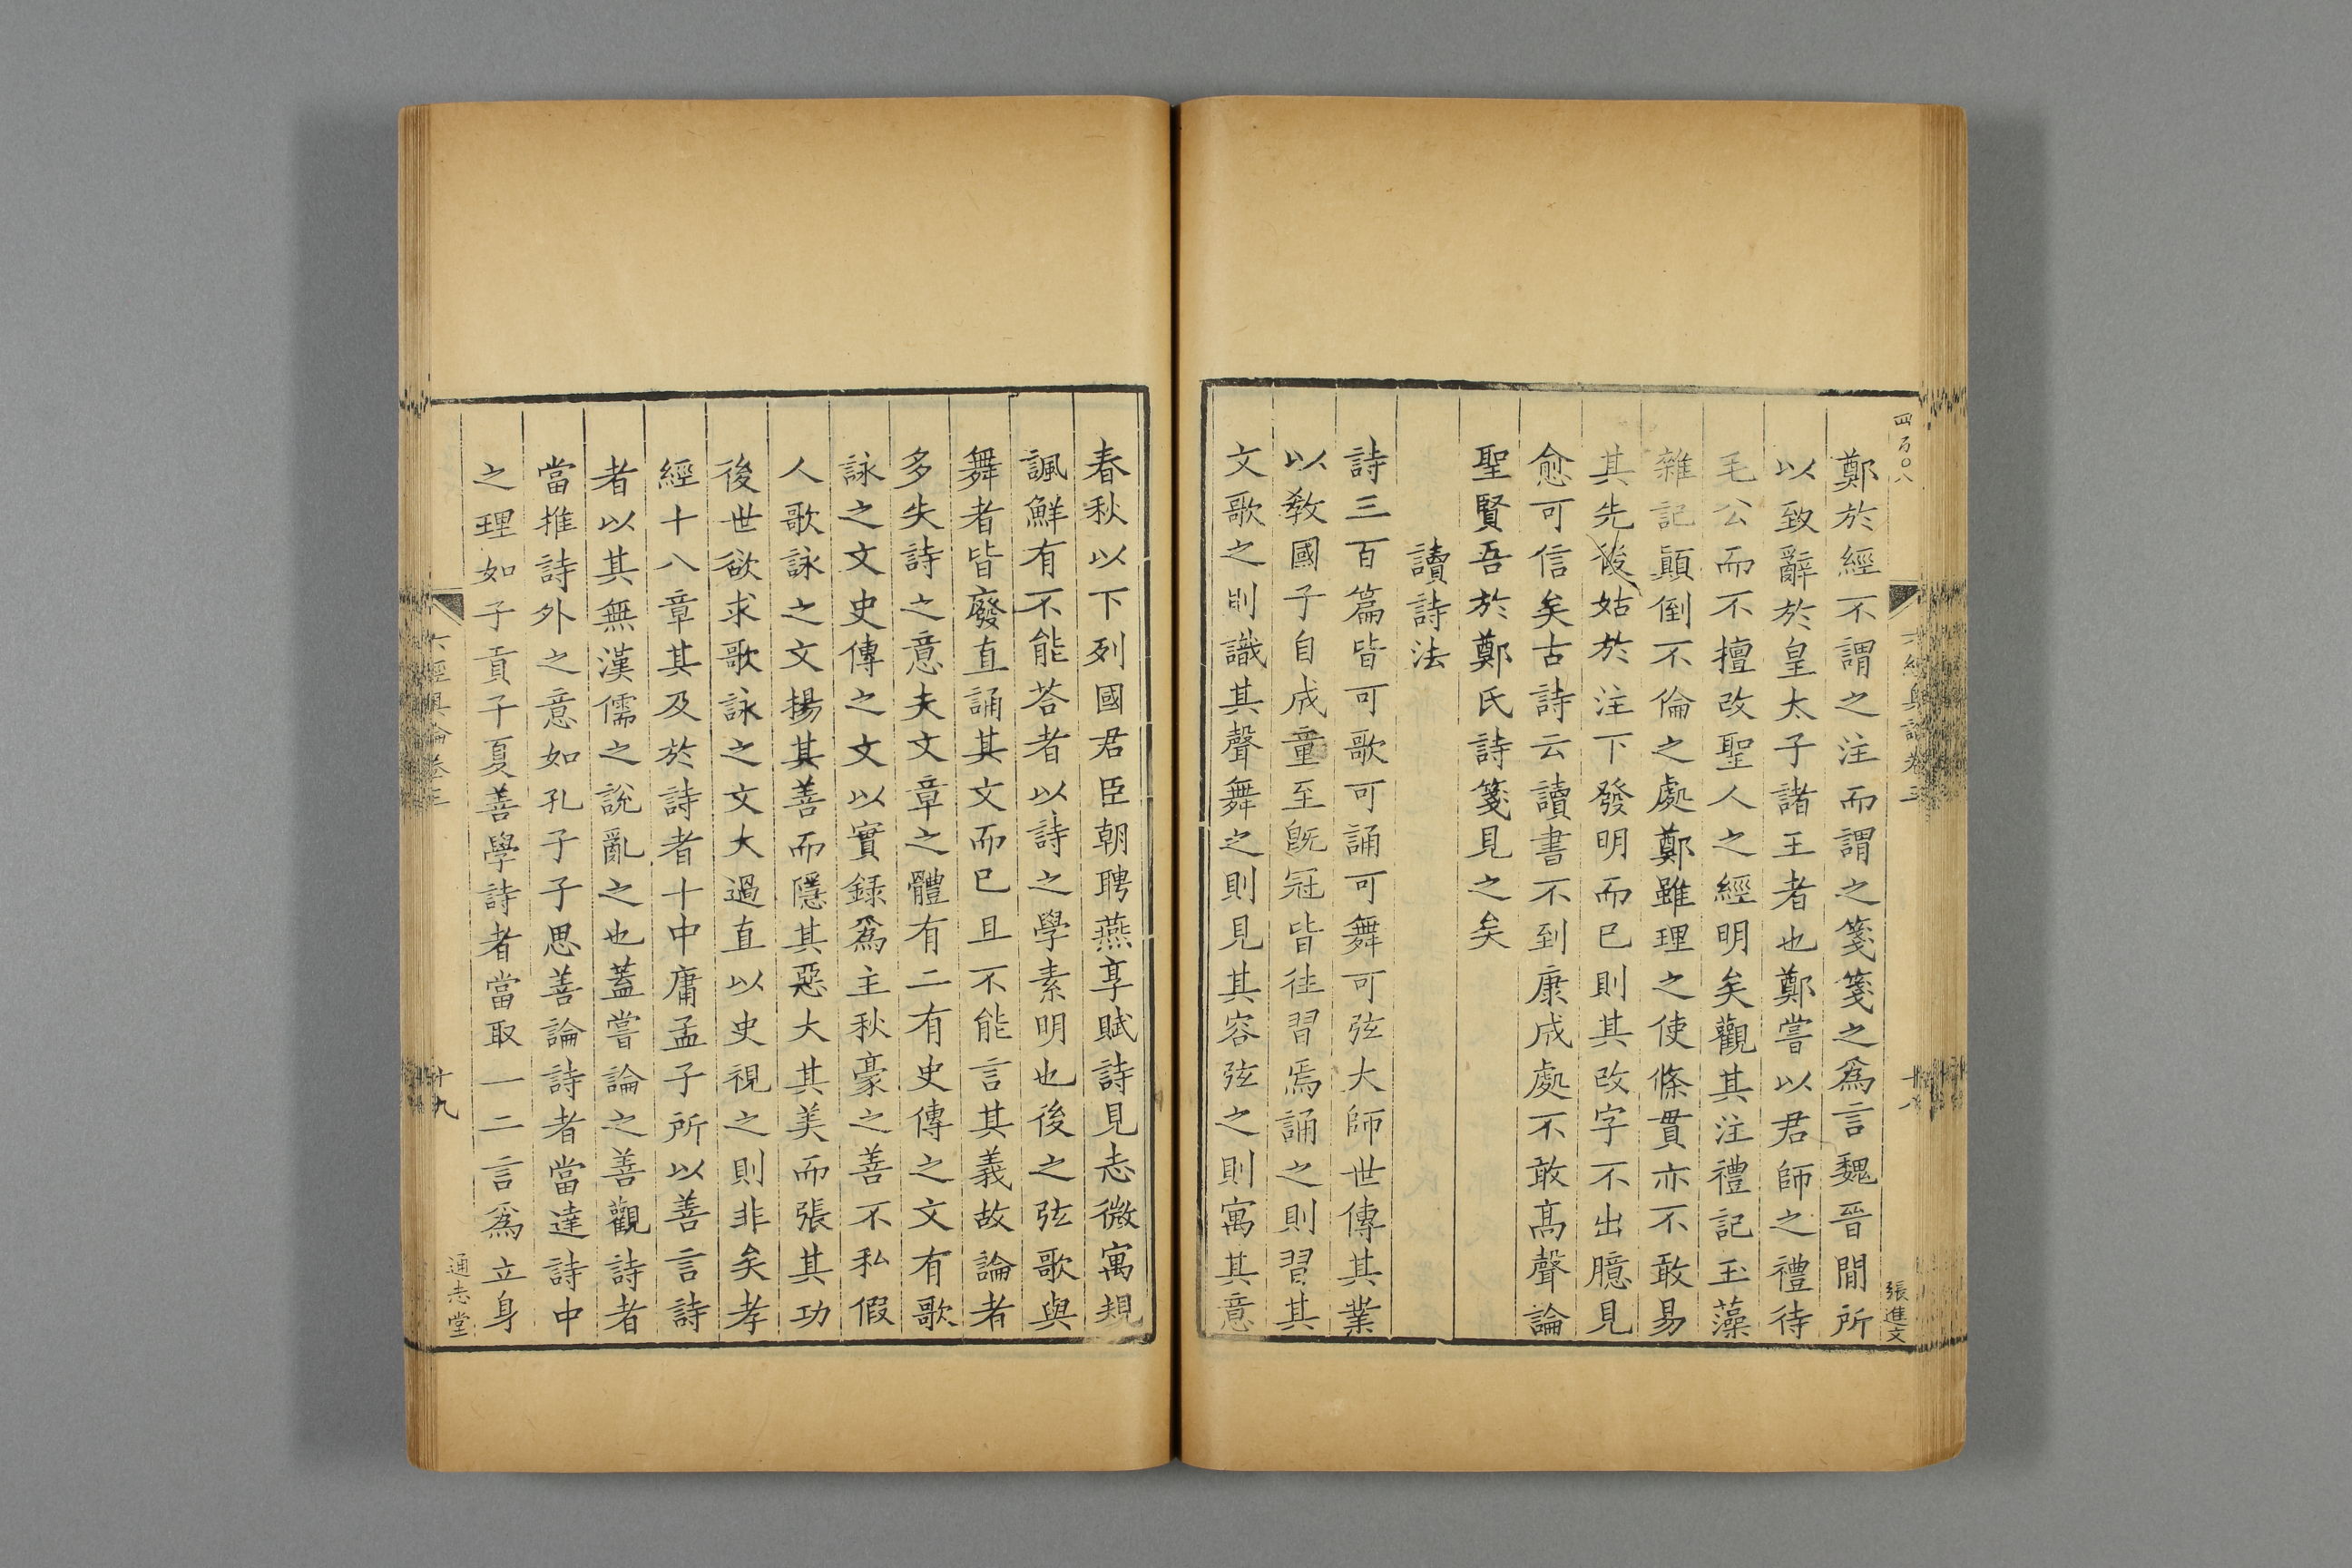 四百〇八
六經奧論卷三
十八
張進文
鄭於經不謂之注而謂之箋箋之爲言魏晉間所
以致辭於皇太子諸王者也鄭嘗以君師之禮待
毛公而不擅改聖人之經明矣觀其注禮記玉藻
雜記顛倒不倫之處鄭雖理之使條貫亦不敢易
其先後姑於注下發明而已則其改字不出臆見
愈可信矣古詩云讀書不到康成處不敢髙聲論
聖賢吾於鄭氏詩箋見之矣
讀詩法
詩三百篇皆可歌可誦可舞可弦大師世傳其業
以教國子自成童至旣冠皆徃習焉誦之則習其
文歌之則識其聲舞之則見其容弦之則寓其意
春秋以下列國君臣朝聘燕享賦詩見志微寓規
諷鮮有不能荅者以詩之學素明也後之弦歌與
舞者皆廢直誦其文而已且不能言其義故論者
多失詩之意夫文章之體有二有史傳之文有歌
詠之文史傳之文以實錄爲主秋豪之善不私假
人歌詠之文揚其善而隱其惡大其美而張其功
後世欲求歌詠之文大過直以史視之則非矣孝
經十八章其及於詩者十中庸孟子所以善言詩
者以其無漢儒之說亂之也蓋嘗論之善觀詩者
當推詩外之意如孔子子思善論詩者當達詩中
之理如子貢子夏善學詩者當取一二言爲立身
六經奧論卷三
十九
通志堂